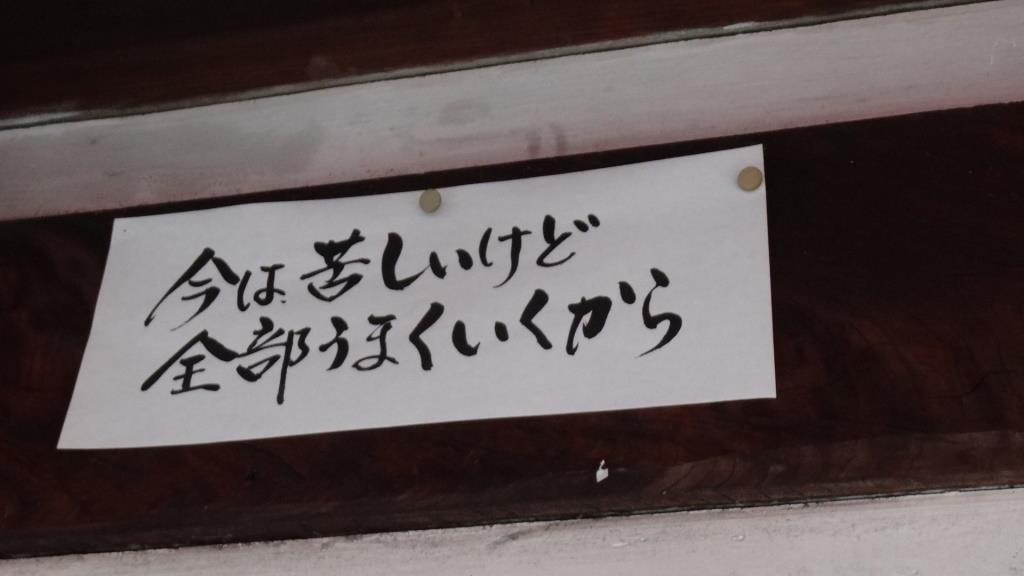 今は苦しいけど
全部うまくいくから